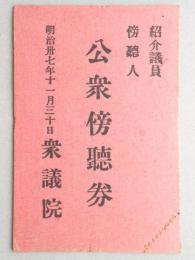 紹介議員
傍聽人
公衆傍聽券
明治卅七年十一月三十日
衆議院